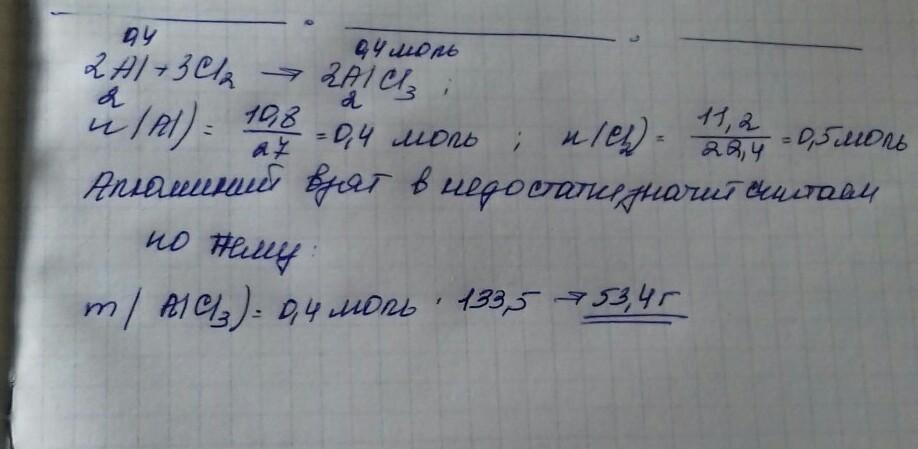 0,4 0,4 моль
2Al + 3Cl2 → 2AlCl3 ;
2 2
n(Al) = 10,8/27 = 0,4 моль ; n(Cl2) = 11,2/22,4 = 0,5 моль
Алюминий взят в недостатке, значит считаем
по нему:
m(AlCl3) = 0,4 моль · 133,5 → 53,4 г